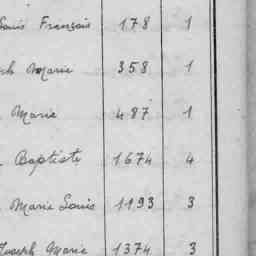 Louis François 178 1
Marie 358 1
Marie 487 1
Baptiste 1674 4
Marie Louis 1193 3
Joseph Marie 1374 3